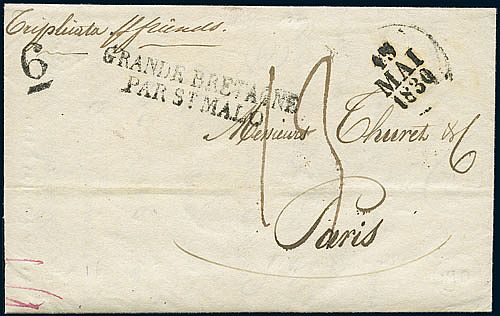 Triplicata ff friends.
6
GRANDE BRETAGNE
PAR ST MALO
18
MAI
1830
13
Messieurs Thuret & C
Paris